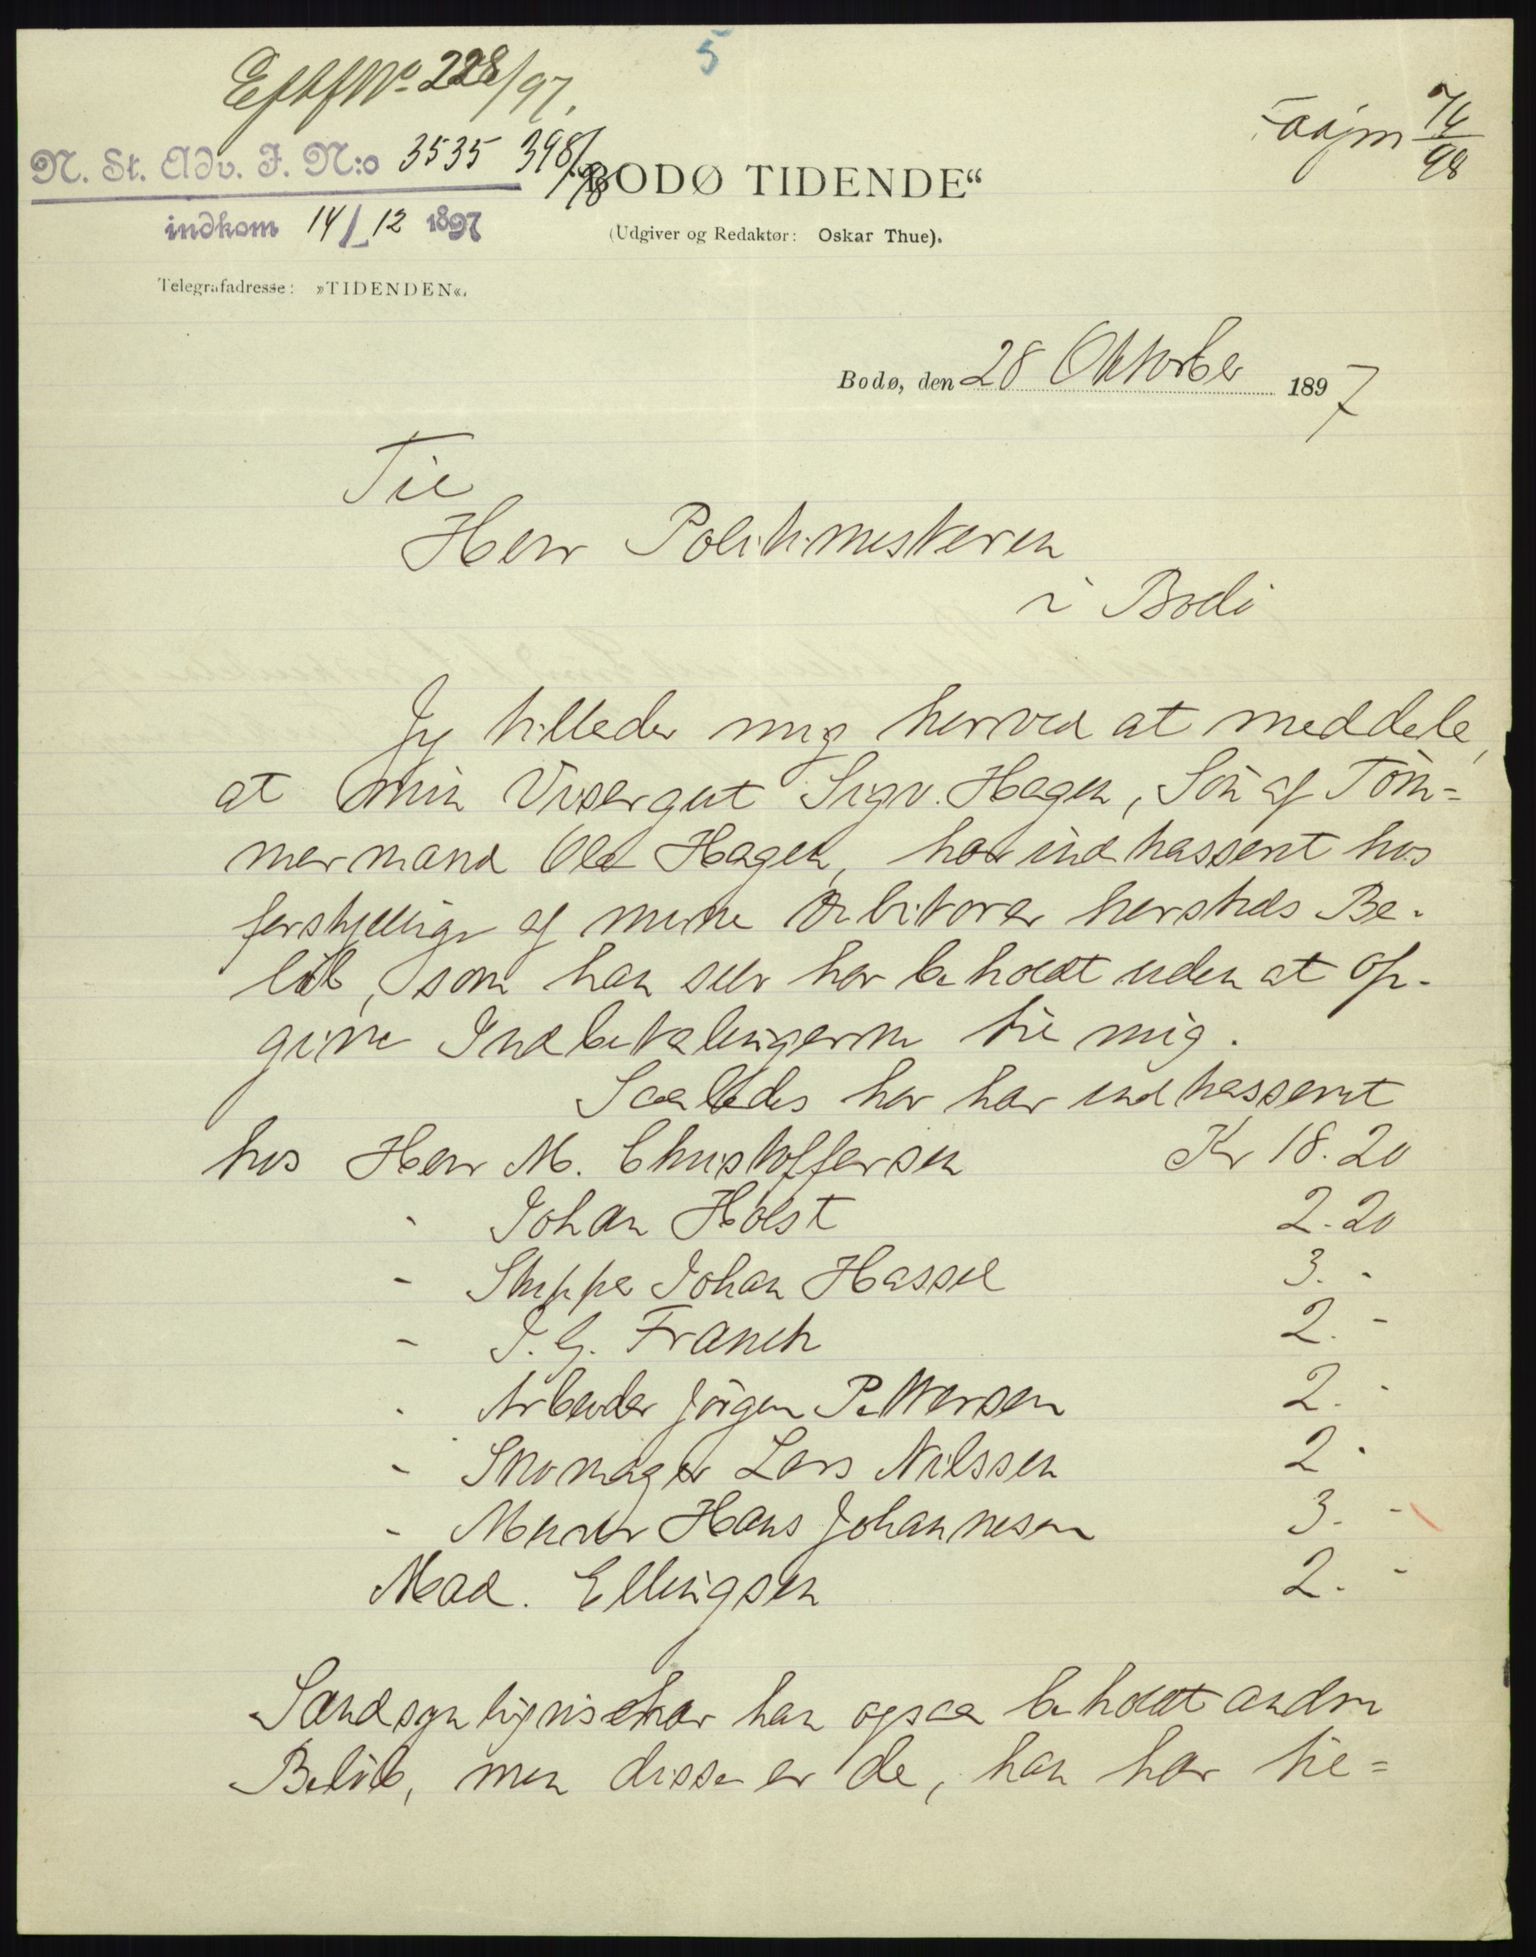 5
No 228/97.
N. St. Adv. J. N:o 3535 398/98
indkom 14/12 1897
"BODØ TIDENDE“
(Udgiver og Redaktør: Oskar Thue).
Telegrafadresse: »TIDENDEN«.
Bodø, den 28 Oktober 1897
Til
Herr Politimesteren
i Bodö
Jeg tillader mig herved at meddele,
at min Visergut Sigv. Hagen, Sön af Töm=
mermand Ole Hagen, har indkasseret hos
forskjellige af mine Debitorer hersteds Be-
löb, som han selv har beholdt uden at op-
give Indbetalingerne til mig.
Saaledes har han indkasseret
hos Herr M. Christoffersen Kr 18.20
- Johan Holst 2.20
- Skipper Johan Hassel 3. -
- J. G. Franck 2. -
- Arbeider Jörgen Pettersen 2. -
- Skomager Lars Nilssen 2 -
- Murer Hans Johannesen 3. -
Mad. Ellingsen 2. -
Sandsynligvis har han ogsaa beholdt andre
Belöb, men disse er de, han har til=